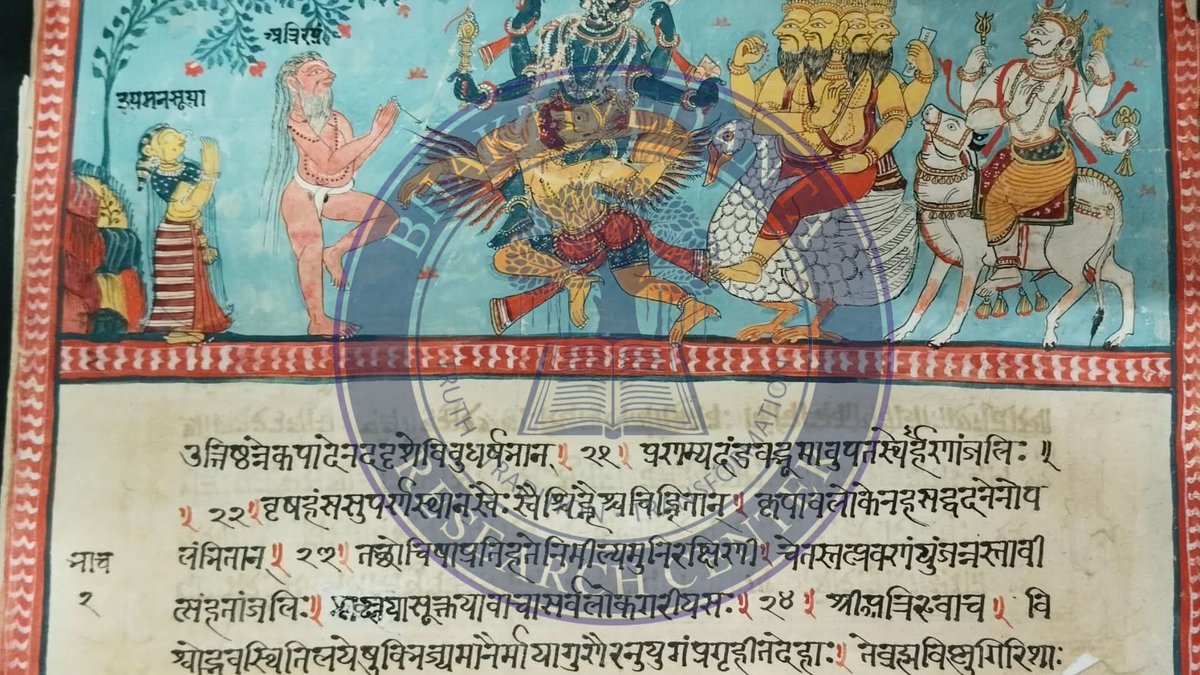 उपमनसूया
उत्तिष्ठन्नेकपादेनददृशेविबुधर्षभान्॥२१॥प्रणम्यदंडवद्भूमावुपतस्थेर्हणांजलिः॥
॥२२॥वृषहंससुपर्णस्थान्स्वैःस्वैश्चिह्नैश्चचिह्नितान्॥कृपावलोकेनहसद्वदनेनोप
लंभितान्॥२३॥तद्रोचिषाप्रतिहतेनिमील्यमुनिरक्षिणी॥चेतस्तत्प्रवणंयुंजन्नस्तावी
भाच
२
त्संहतांजलिः॥श्लक्ष्णयासूक्तयावाचासर्वलोकगरीयसः॥२४॥श्रीअत्रिरुवाच॥वि
श्वोद्भवस्थितिलयेषुविभज्यमानैर्मायागुणैरनुयुगंप्रगृहीतदेहाः॥तेब्रह्मविष्णुगिरिशाः
RESEARCH CENTRE
TRUTH